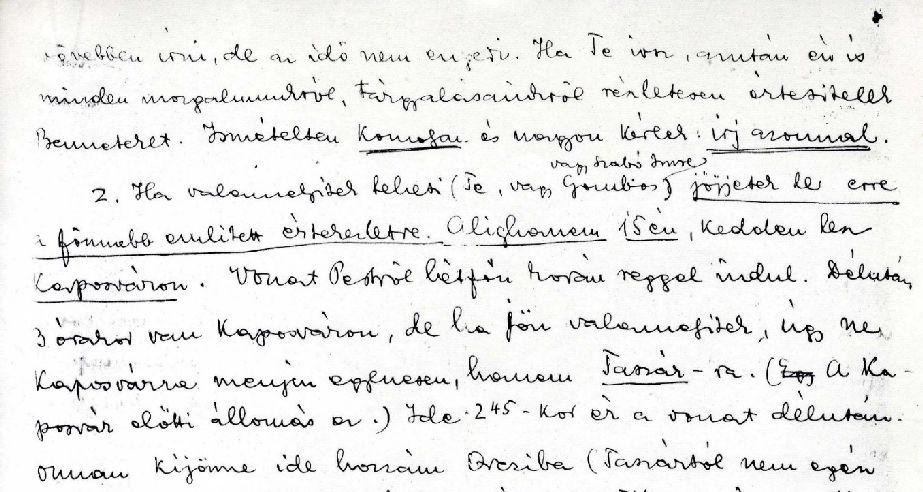 bővebben írni, de az idő nem engedi. Ha Te irsz, azután én is
minden mozgalmunkról, tárgyalásainkról részletesen értesitelek
Benneteket. Ismételten komolyan és nagyon kérlek: irj azonnal.
vagy Szabó Imre
2. Ha valamelyitek teheti (Te, vagy Gombos) jöjjetek le erre
a fönnebb emlitett értekezletre. Alighanem 15én, kedden lesz
Kaposváron. Vonat Pestről hétfőn korán reggel indul. Délután
3 órakor van Kaposváron, de ha jön valamelyitek, úgy ne
Kaposvárra menjen egyenesen, hanem Taszár-ra. (A Ka-
posvár előtti állomás az.) Ide 2 45-kor ér a vonat délután.
onnan kijönne ide hozzám Orcziba (Taszártól nem egén